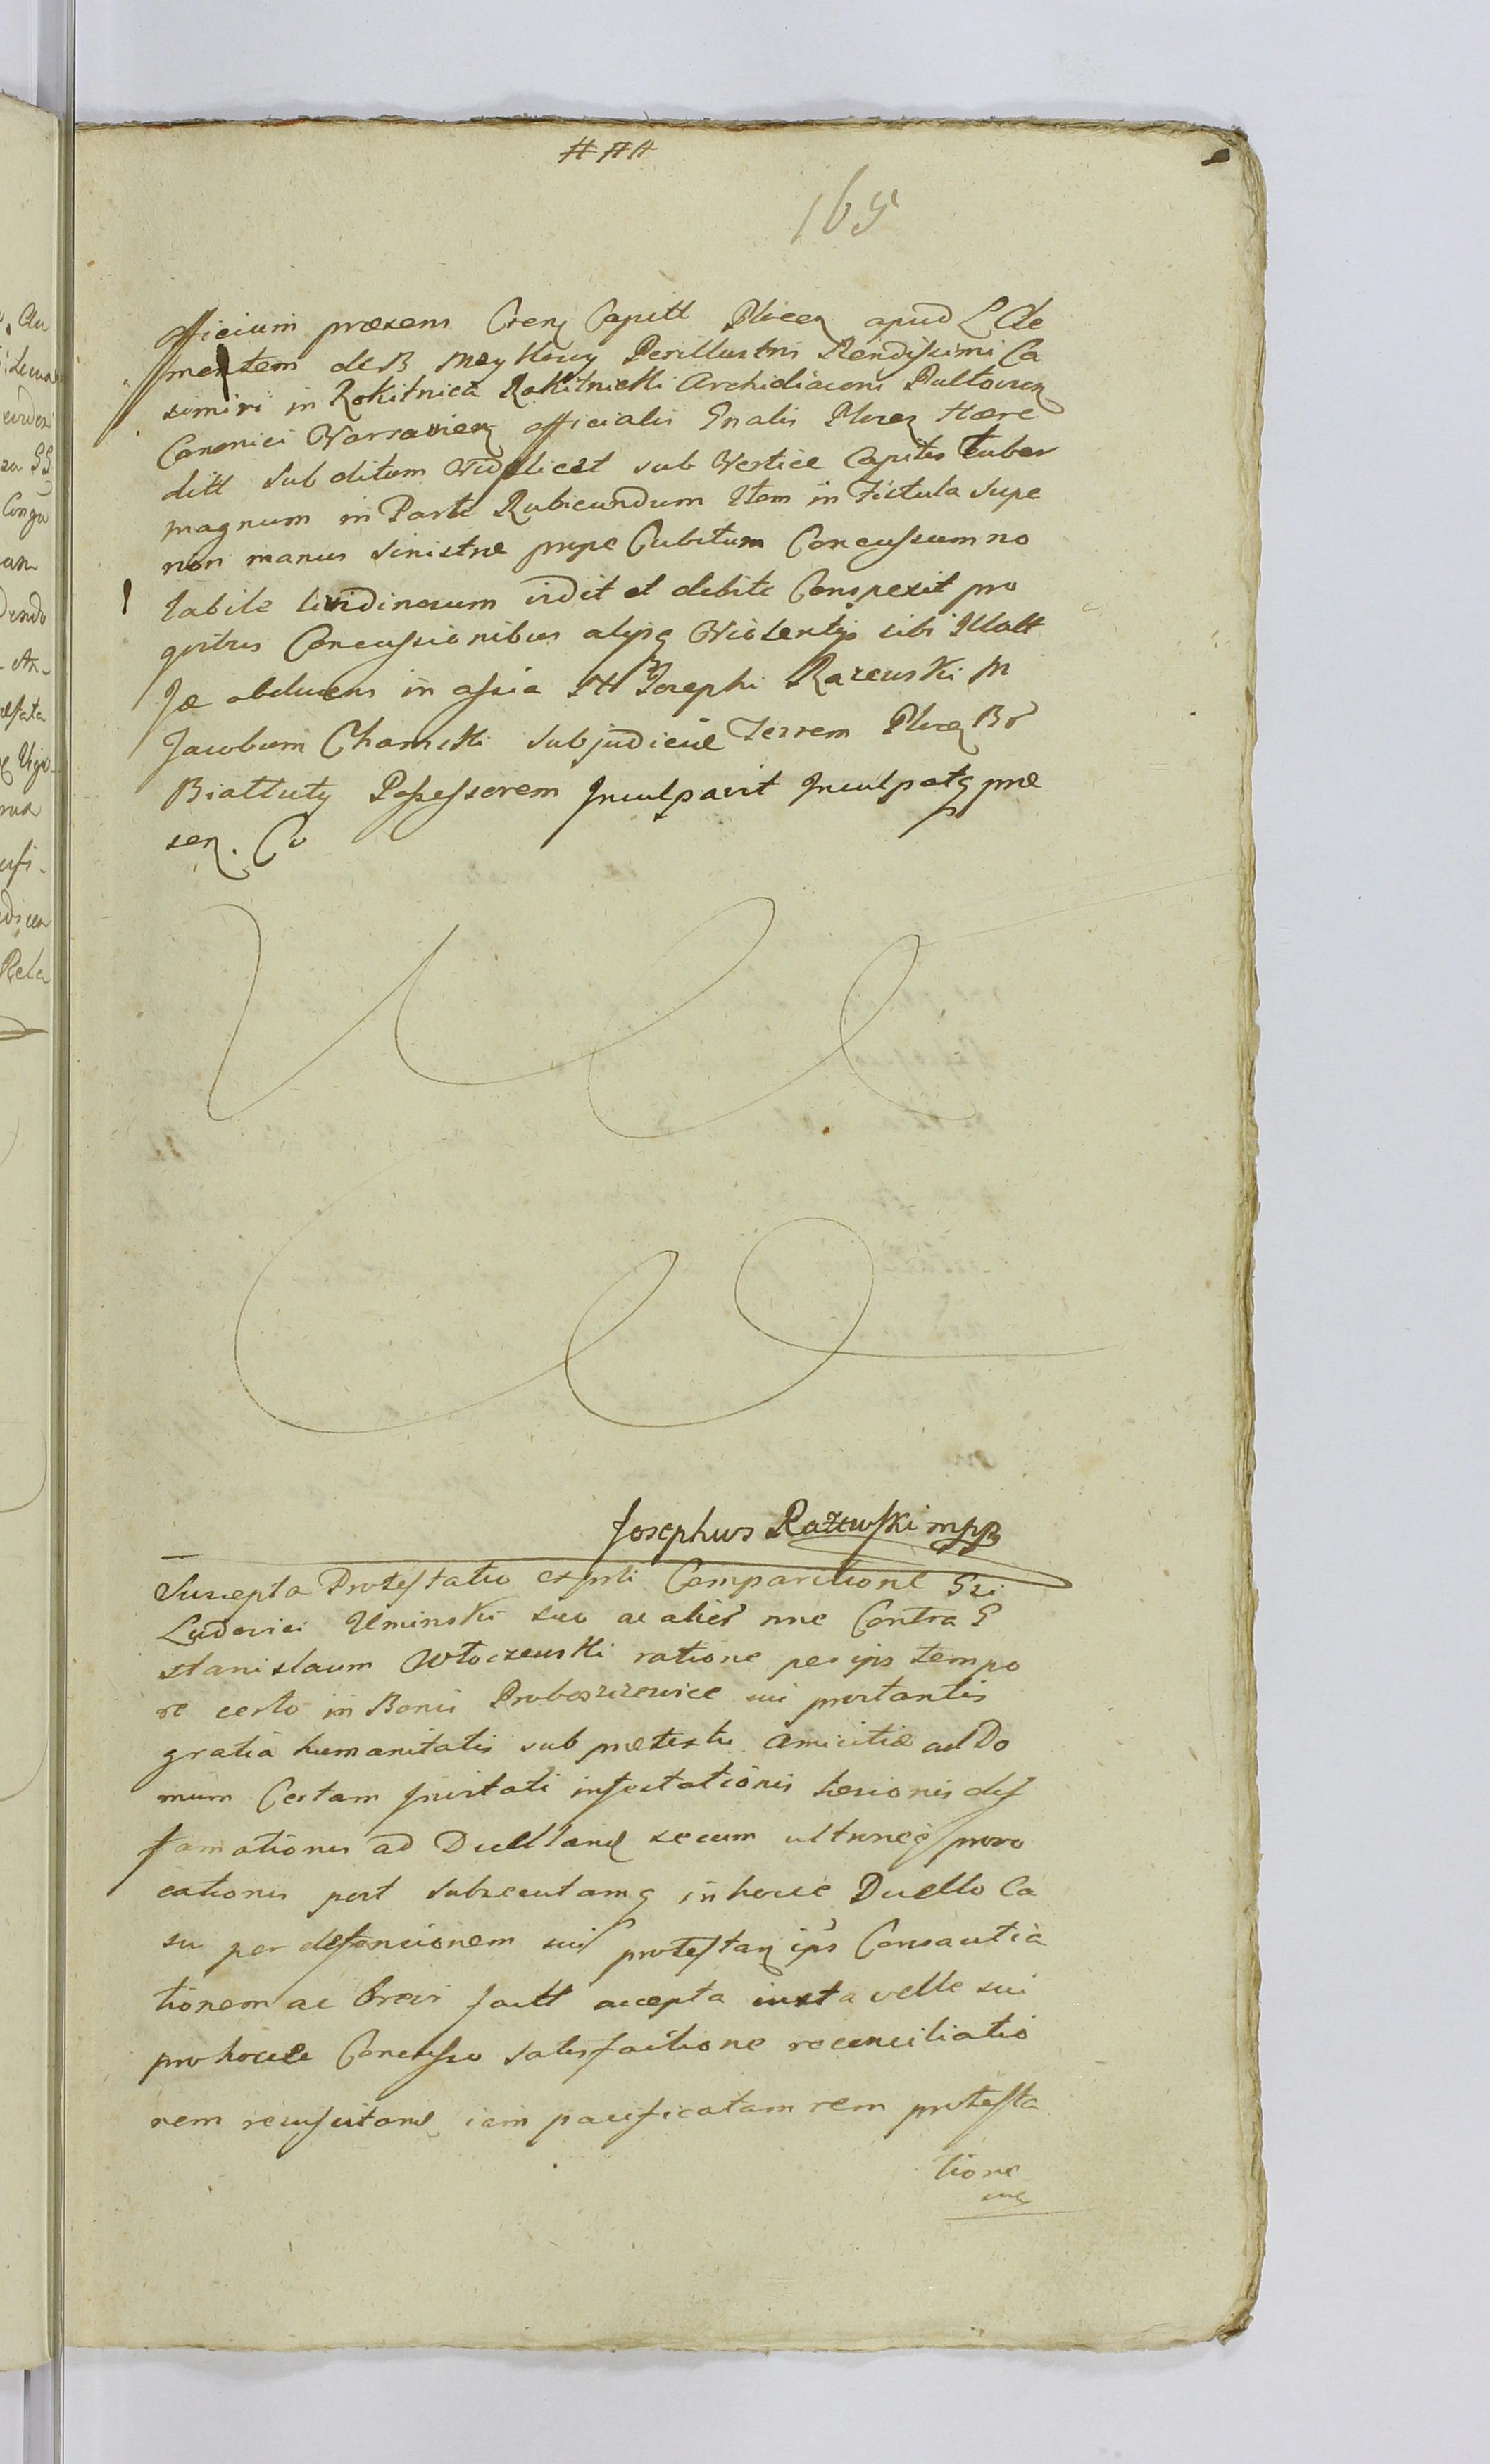 165
Officium præsens Cren Capitt Plocen apud L Cle
mentem de B Meykowy Perillustris Rendissimi Ca
simiri in Rokitnica Rokitnicki Archidiaconi Pultovien
Canonici Varsavien officialis Gnalis Plocen Hære
ditt Subditum Videlicet sub Vertice Capitis tuber
magnum in Parte Rubicundum Item in Fistula Supe
riori manus Sinistræ prope Cubitum Concussum no
tabile lividinosum vidit et debite Conspexit pro
quibus Concussionibus alysq Violentys sibi Illatt
Jacobum Chamski Subjudicem Terrem Plocen Br
Białtuty Possessorem Inculpavit Inculpatq præ
sen. Co
Josephus Rażewski mpp
Suscepta Protestatio ex psti Comparitione Gsi
Ludovici Ilminski suo ac alior nne Contra G
Stanislaum Włoczewski ratione per ips tempo
re certo in Bonis Proboszczewice sui protestantis
gratia humanitatis sub prætextu amicitiæ ad Do
mum Certam Invitati infestationis læsionis dif
famationis ad Duelland secum ultroneæ provo
cationis post Subsecutamq in hocce Duello Ca
su per defensionem sui protestan ips Consautia
tionem ac brevi factt accepta iuxta velle sui
pro hocce Concusso Satisfactione reconciliatio
nem resuscitand iam pacificatam rem protesta
tione